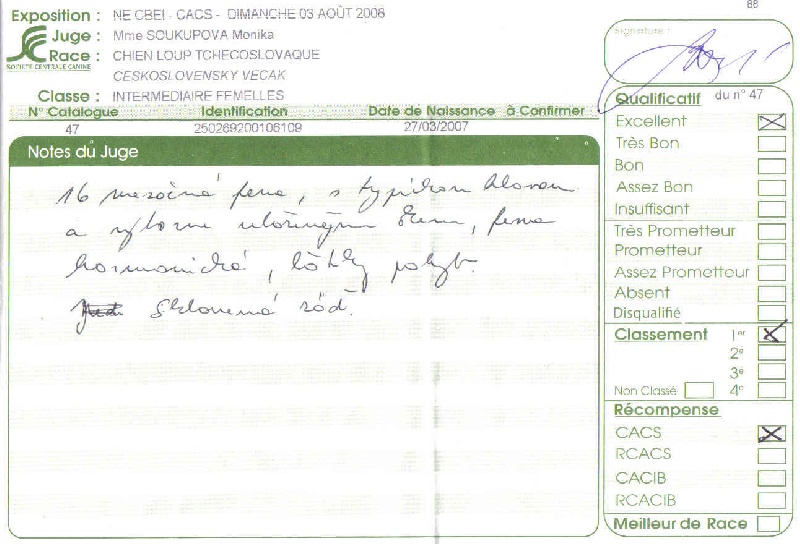 88
Exposition : NE CBEI - CACS - DIMANCHE 03 AOÛT 2008
Juge : Mme SOUKUPOVA Monika
Race : CHIEN LOUP TCHECOSLOVAQUE
SOCIETE CENTRALE CANINE
CESKOSLOVENSKY VECAK
Classe : INTERMEDIAIRE FEMELLES
N° Catalogue Identification Date de Naissance à Confirmer
47 250269200106109 27/03/2007
Notes du Juge
16 mesačná fena, s typickou hlavou
a výborne uloženým okem, fena
harmonická, lôtky pohyb.
sklonená záď.
Signature :
Qualificatif du n° 47
Excellent
Très Bon
Bon
Assez Bon
Insuffisant
Très Prometteur
Prometteur
Assez Prometteur
Absent
Disqualifié
Classement 1er
2e
3e
Non Classé 4e
Récompense
CACS
RCACS
CACIB
RCACIB
Meilleur de Race